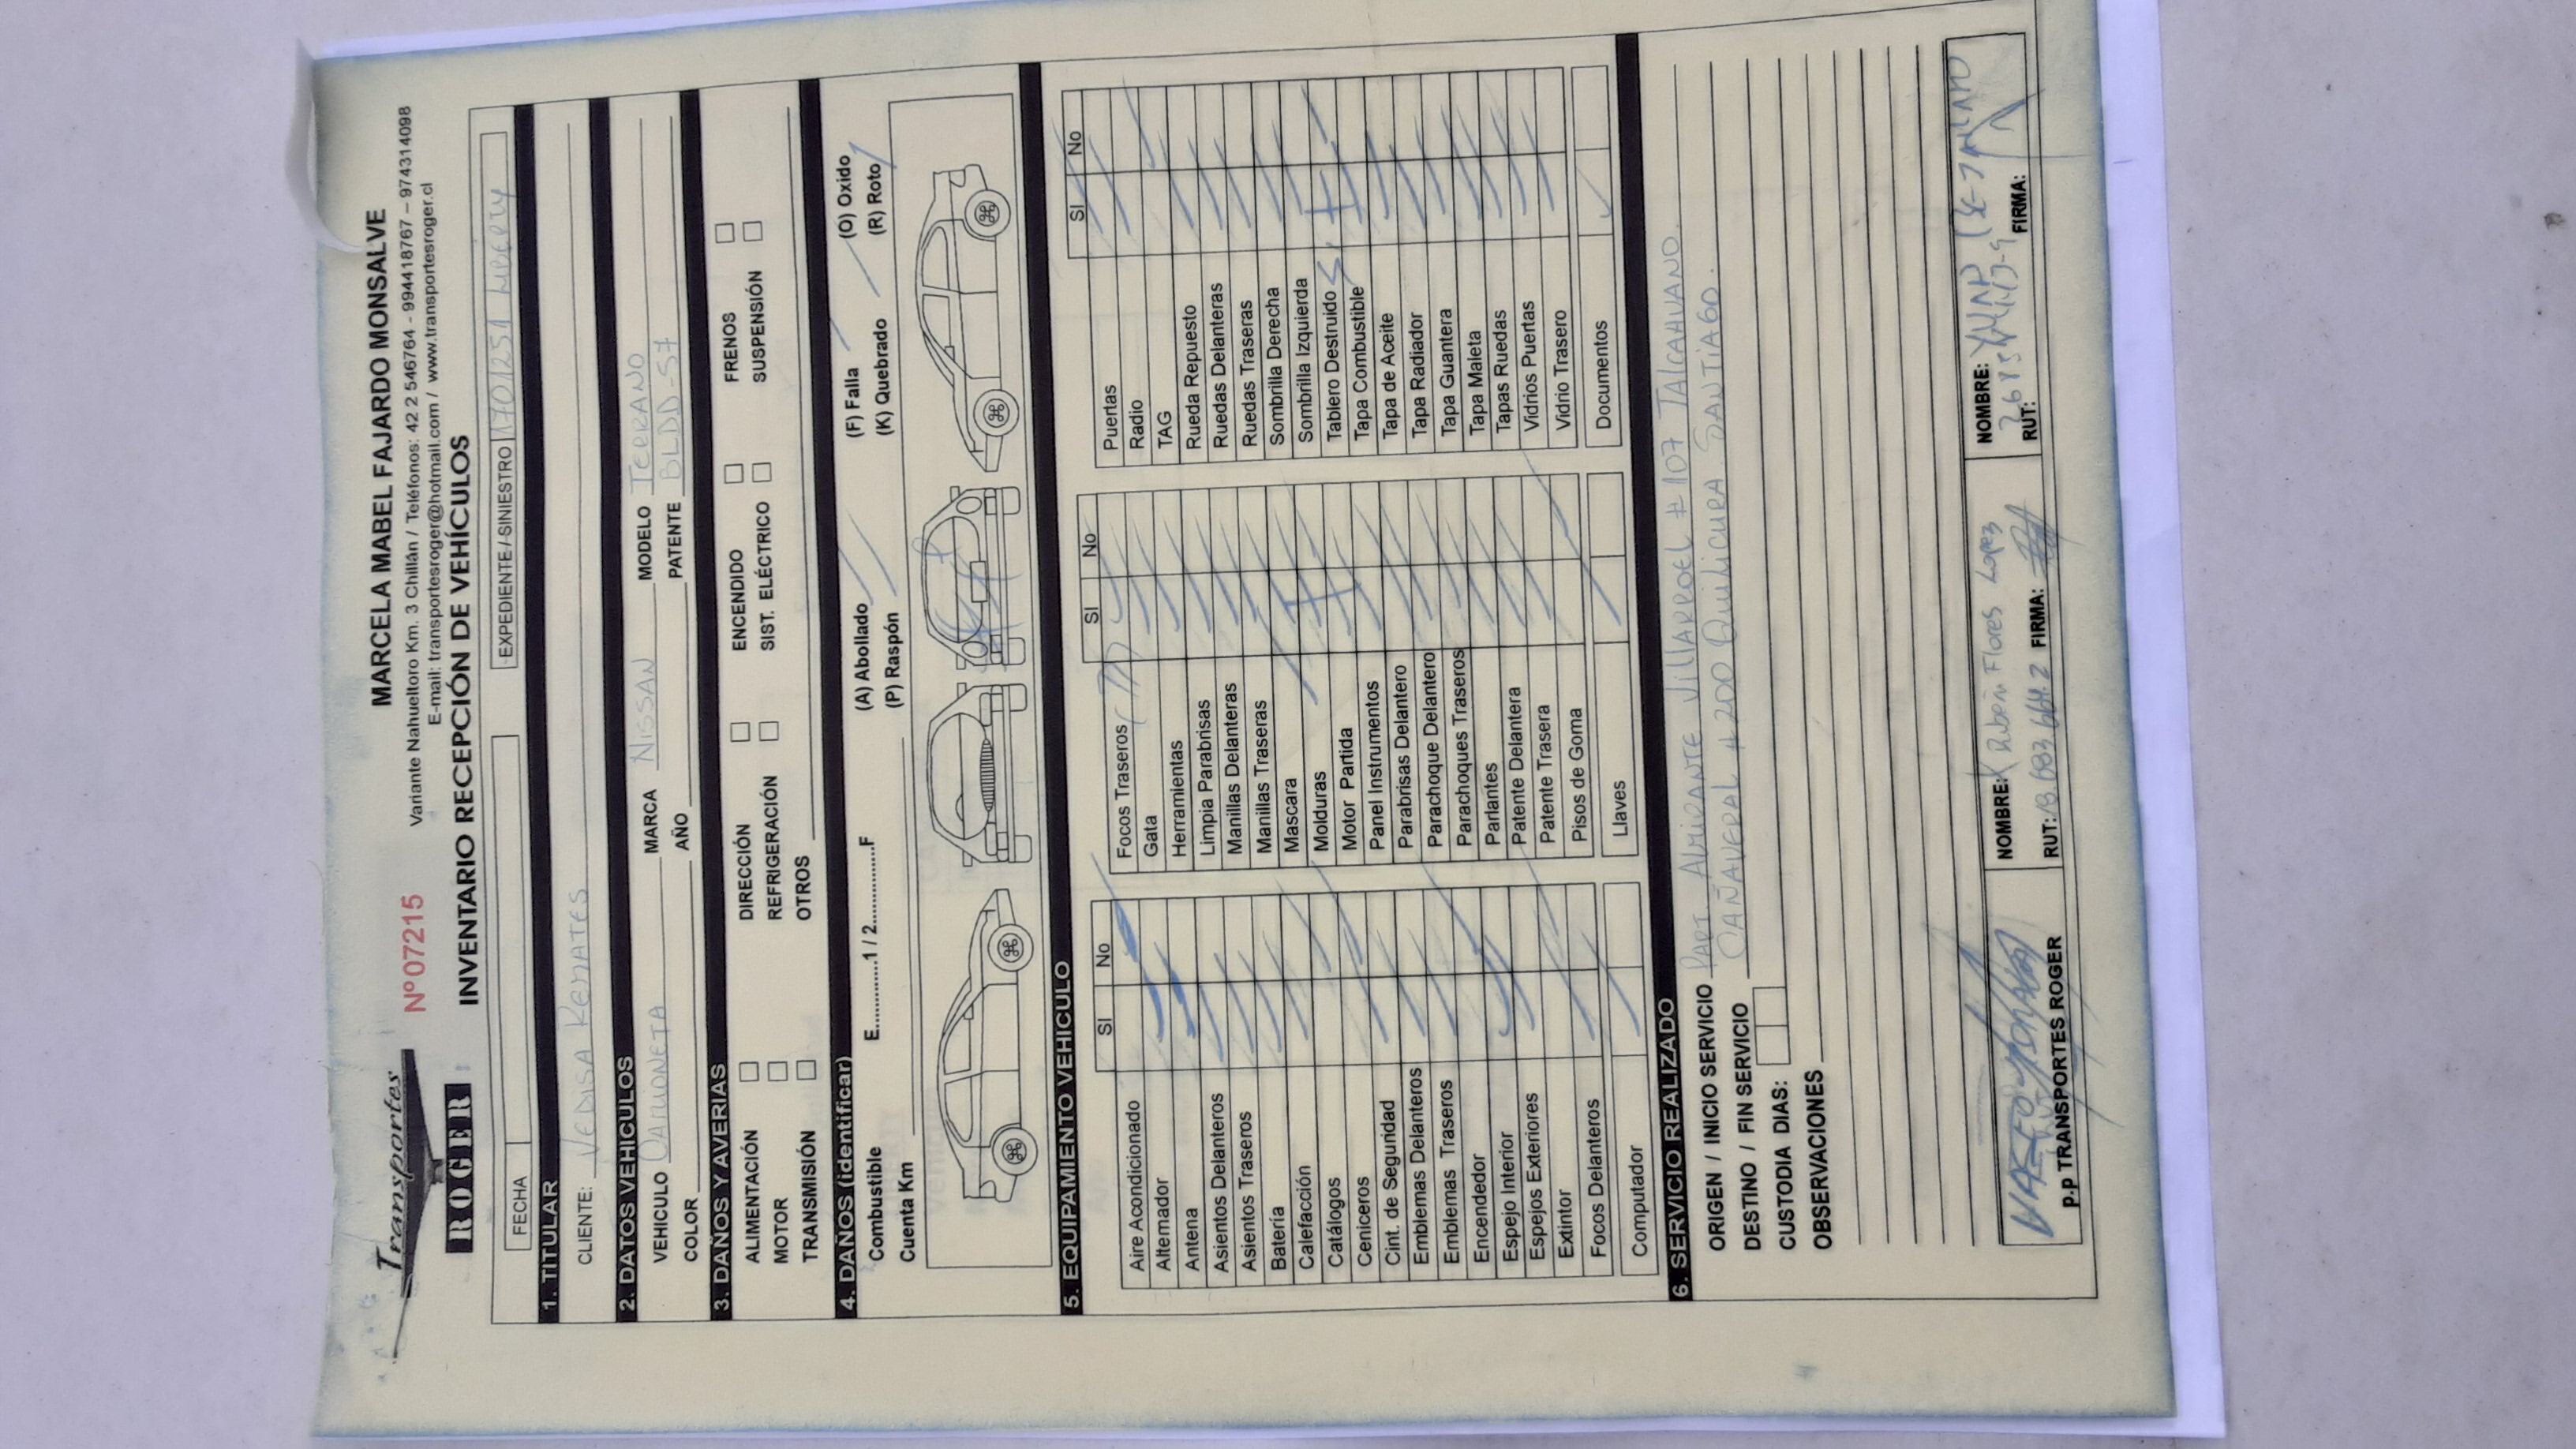 Transportes
ROGER
Nº 07215
MARCELA MABEL FAJARDO MONSALVE
Variante Nahueltoro Km. 3 Chillán / Teléfonos: 42 2 546764 - 994418767 – 974314098
E-mail: transportesroger@hotmail.com / www.transportesroger.cl
INVENTARIO RECEPCIÓN DE VEHÍCULOS
FECHA
EXPEDIENTE / SINIESTRO 1701251 LIBERTY
1. TITULAR
CLIENTE: VEDISA REMATES
2. DATOS VEHICULOS
VEHICULO CAMIONETA MARCA NISSAN MODELO TERRANO
COLOR AÑO PATENTE BLDD-57
3. DAÑOS Y AVERIAS
ALIMENTACIÓN DIRECCIÓN ENCENDIDO FRENOS
MOTOR REFRIGERACIÓN SIST. ELÉCTRICO SUSPENSIÓN
TRANSMISIÓN OTROS
4. DAÑOS (identificar)
Combustible E............1 / 2..............F (A) Abollado (F) Falla (O) Oxido
Cuenta Km (P) Raspón (K) Quebrado (R) Roto
5. EQUIPAMIENTO VEHICULO
SI No
Aire Acondicionado
Alternador
Antena
Asientos Delanteros
Asientos Traseros
Batería
Calefacción
Catálogos
Ceniceros
Cint. de Seguridad
Emblemas Delanteros
Emblemas Traseros
Encendedor
Espejo Interior
Espejos Exteriores
Extintor
Focos Delanteros
Computador
SI No
Focos Traseros
Gata
Herramientas
Limpia Parabrisas
Manillas Delanteras
Manillas Traseras
Mascara
Molduras
Motor Partida
Panel Instrumentos
Parabrisas Delantero
Parachoque Delantero
Parachoques Traseros
Parlantes
Patente Delantera
Patente Trasera
Pisos de Goma
Llaves
SI No
Puertas
Radio
TAG
Rueda Repuesto
Ruedas Delanteras
Ruedas Traseras
Sombrilla Derecha
Sombrilla Izquierda
Tablero Destruido
Tapa Combustible
Tapa de Aceite
Tapa Radiador
Tapa Guantera
Tapa Maleta
Tapas Ruedas
Vidrios Puertas
Vidrio Trasero
Documentos
6. SERVICIO REALIZADO
ORIGEN / INICIO SERVICIO PART. ALMIRANTE VILLARROEL # 107 TALCAHUANO.
DESTINO / FIN SERVICIO CAÑAVERAL # 200 QUILICURA. SANTIAGO.
CUSTODIA DIAS:
OBSERVACIONES
p.p TRANSPORTES ROGER
NOMBRE: Ruben Flores Lopez
RUT: 13.683.664.2 FIRMA:
NOMBRE:
RUT: FIRMA: